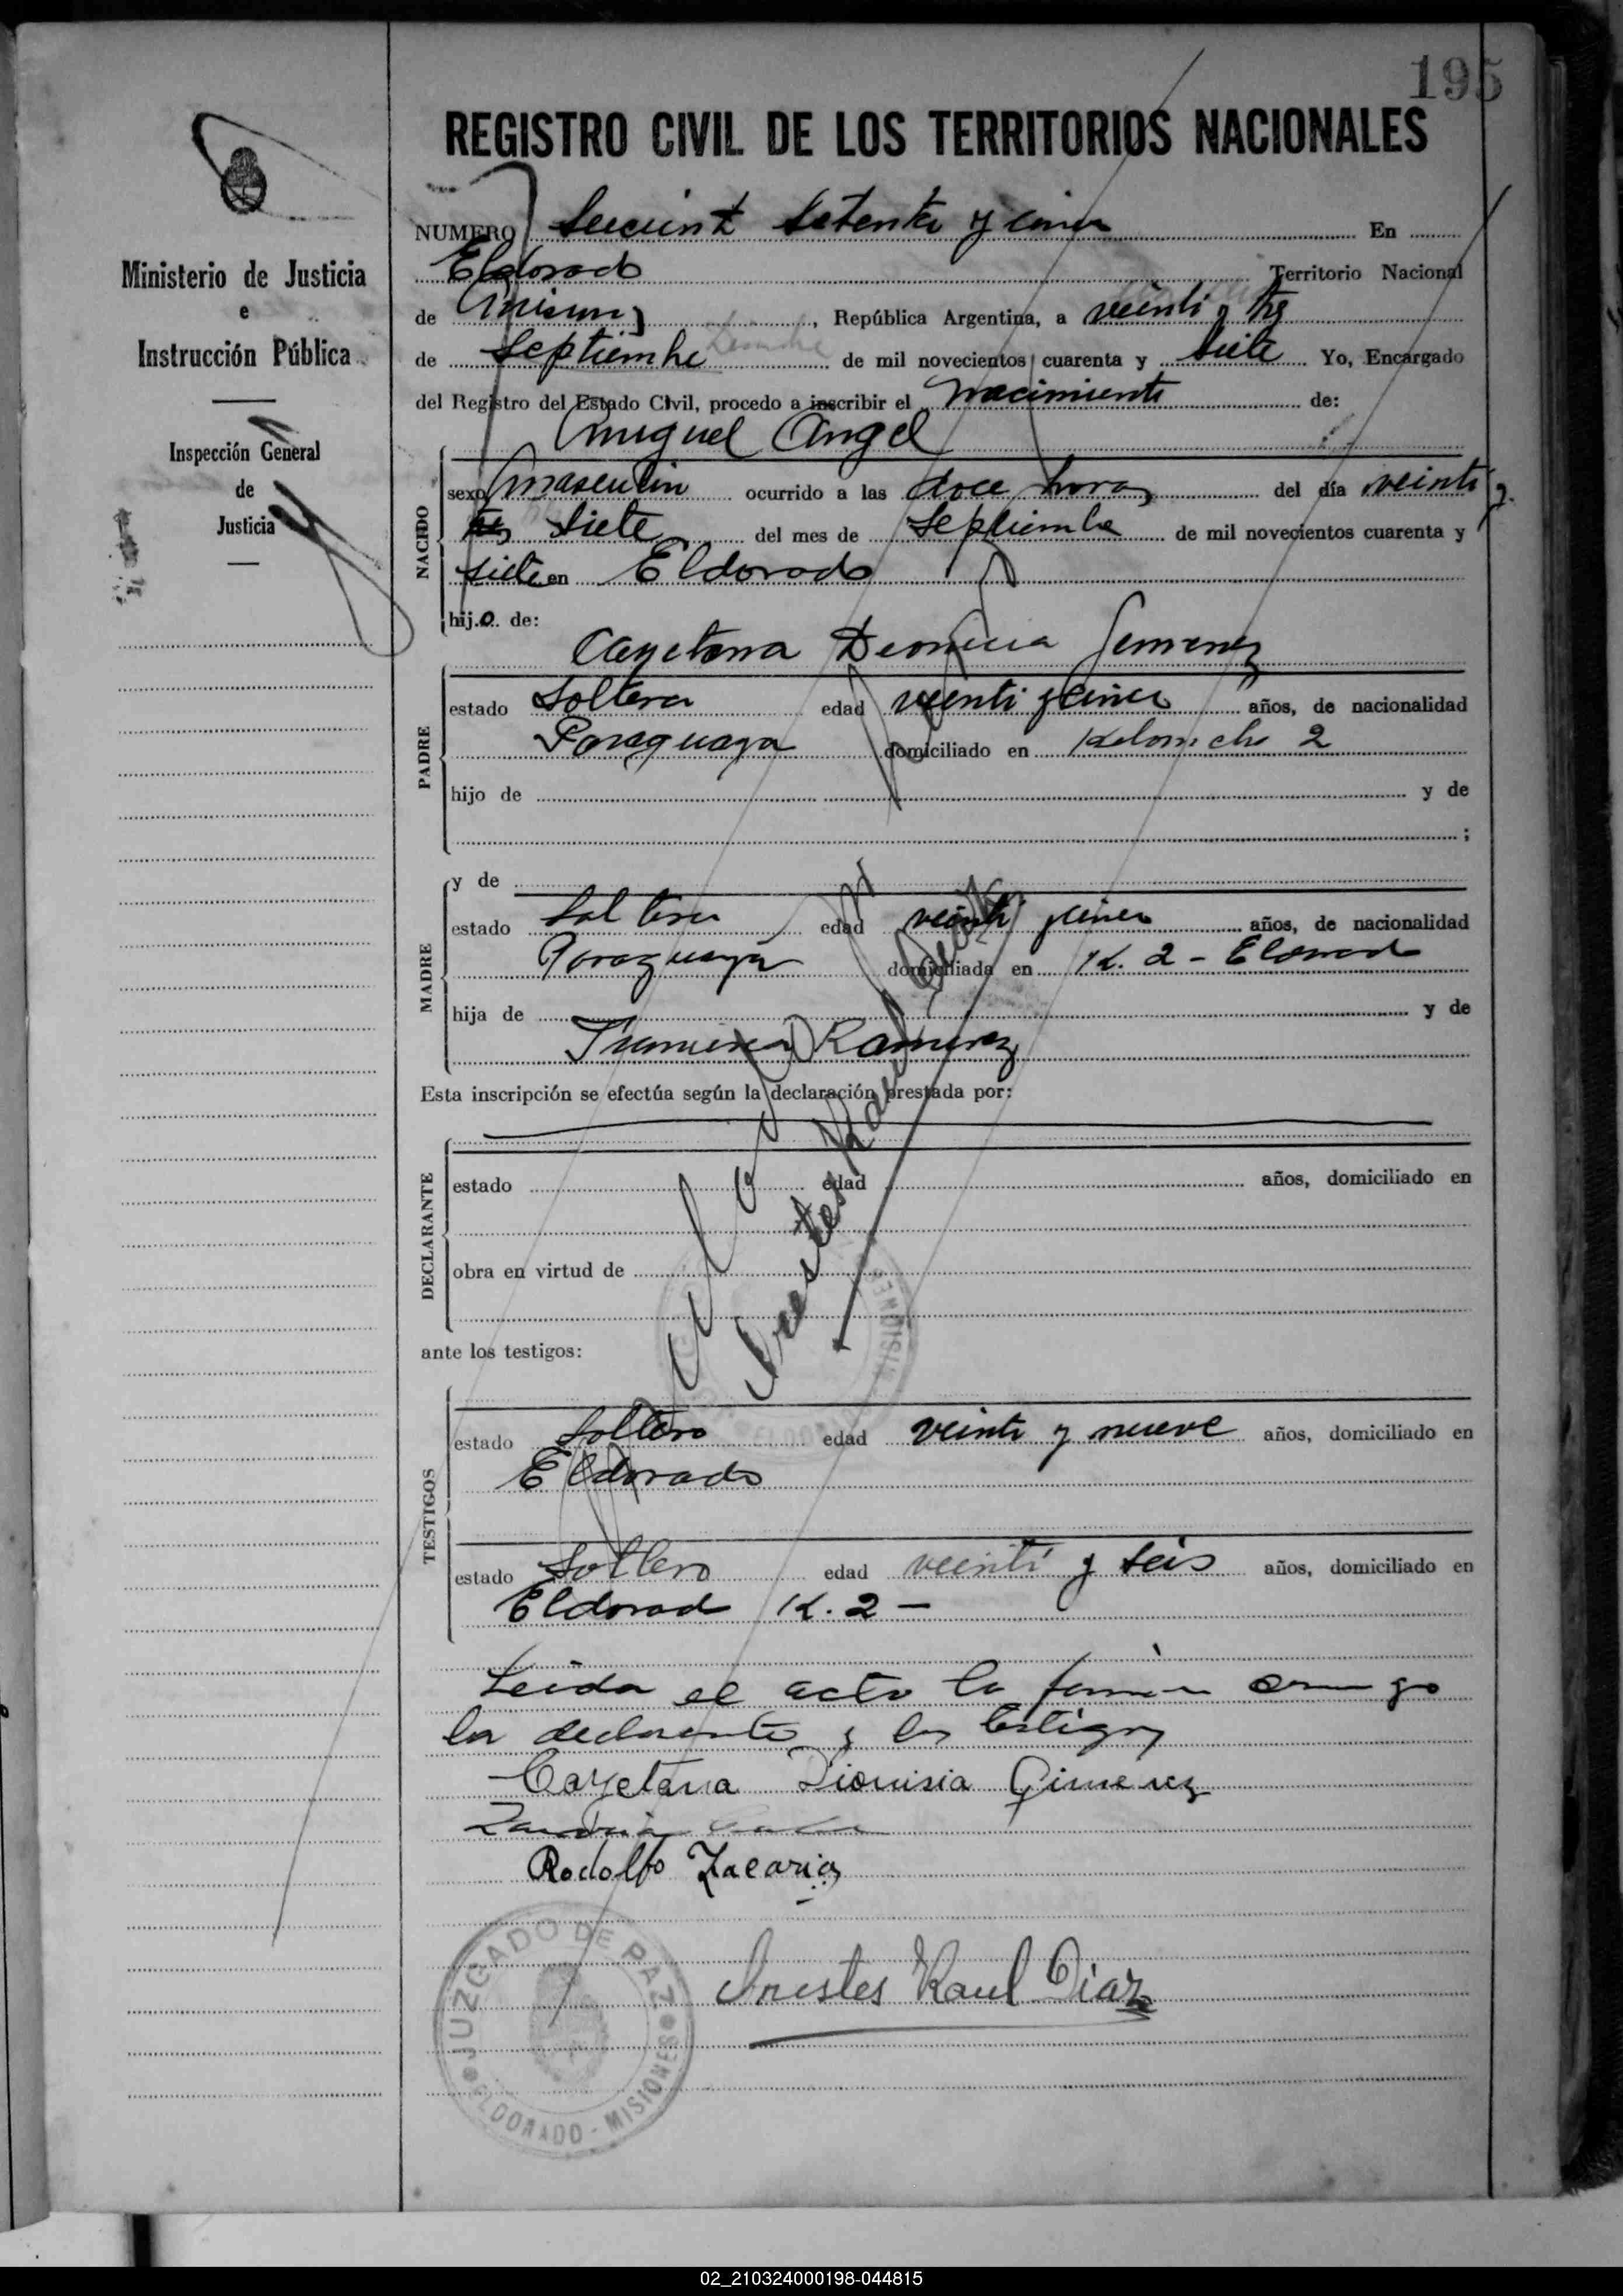 195
REGISTRO CIVIL DE LOS TERRITORIOS NACIONALES
Ministerio de Justicia
e
Instrucción Pública
Inspección General
de
Justicia
NUMERO setenta y cinco En
Eldorado Territorio Nacional
de Misiones, República Argentina, a veinti y tres
de Septiembre de mil novecientos cuarenta y siete Yo, Encargado
del Registro del Estado Civil, procedo a inscribir el nacimiento de:
Miguel Angel
NACIDO
sexo masculino ocurrido a las doce horas del día veinti y
siete del mes de Septiembre de mil novecientos cuarenta y
siete en Eldorado
hij.o. de:
Cayetana Dionicia Jimenez
PADRE
estado Soltera edad veinti y cinco años, de nacionalidad
Paraguaya domiciliado en 2
hijo de y de
;
MADRE
y de
estado Soltera edad veinti y cinco años, de nacionalidad
Paraguaya domiciliada en K. 2 - Eldorado
hija de y de
Ramirez
Esta inscripción se efectúa según la declaración prestada por:
DECLARANTE
estado edad años, domiciliado en
obra en virtud de
Anulado
Orestes Raul Diaz
ante los testigos:
TESTIGOS
estado Soltero edad veinti y nueve años, domiciliado en
Eldorado
estado Soltero edad veinti y seis años, domiciliado en
Eldorado K. 2 -
Leida el acta la firman
la declarante y los testigos
Cayetana Dionisia Gimenez
Rodolfo Zacarias
Orestes Raul Diaz
JUZGADO DE PAZ
ELDORADO - MISIONES
02_210324000198-044815